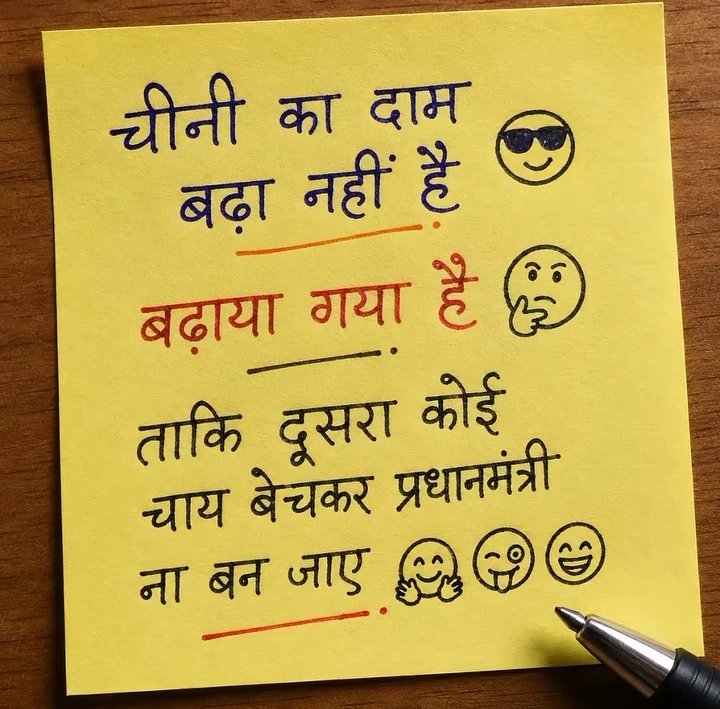 चीनी का दाम
बढ़ा नहीं है
बढ़ाया गया है
ताकि दूसरा कोई
चाय बेचकर प्रधानमंत्री
ना बन जाए